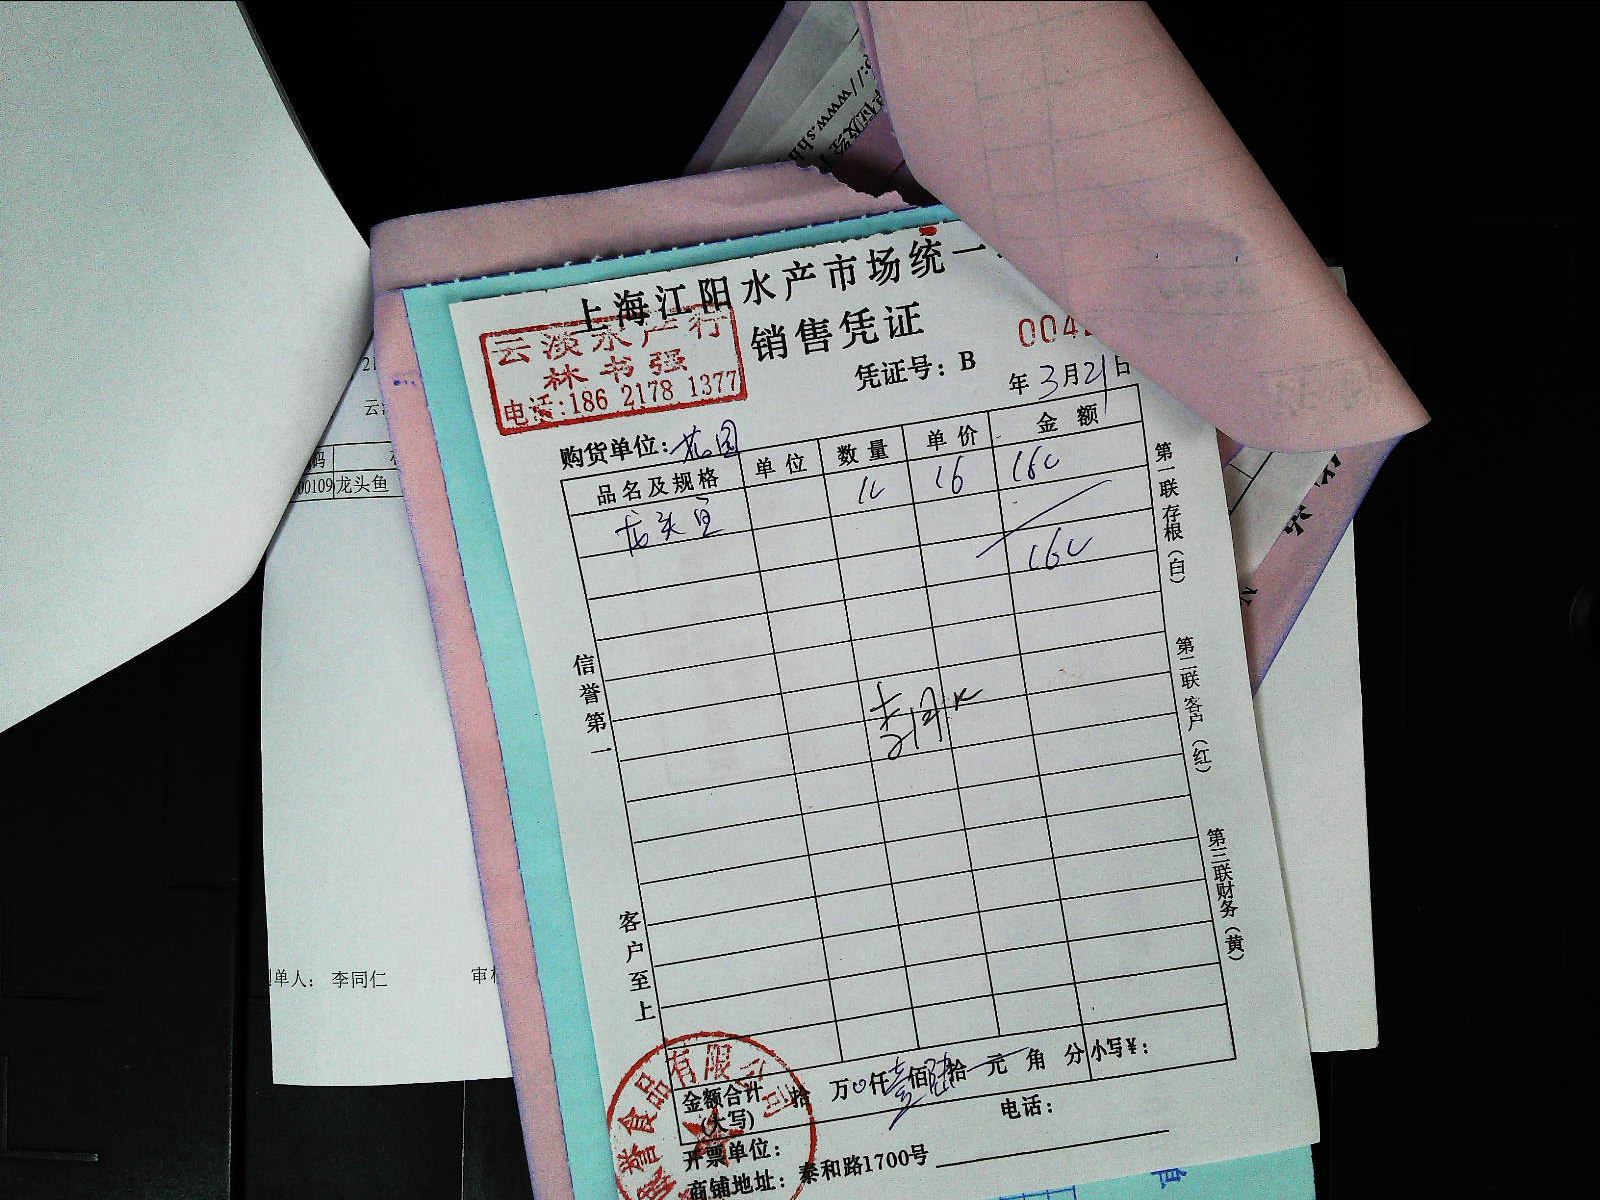 上海江阳水产市场统一
销售凭证
云淡水产行
林书强
电话:186 2178 1377
004
凭证号：B
年3月21日
购货单位：花园
品名及规格 单位 数量 单价 金额
龙头鱼 10 16 160
160
信誉第一
客户至上
第一联存根（白）
第二联客户（红）
第三联财务（黄）
金额合计(大写) 拾 万0仟壹佰陆拾 元 角 分 小写¥：
开票单位： 电话：
商铺地址：泰和路1700号
誉食品有限公司
00109 龙头鱼
单人： 李同仁
://www.sh